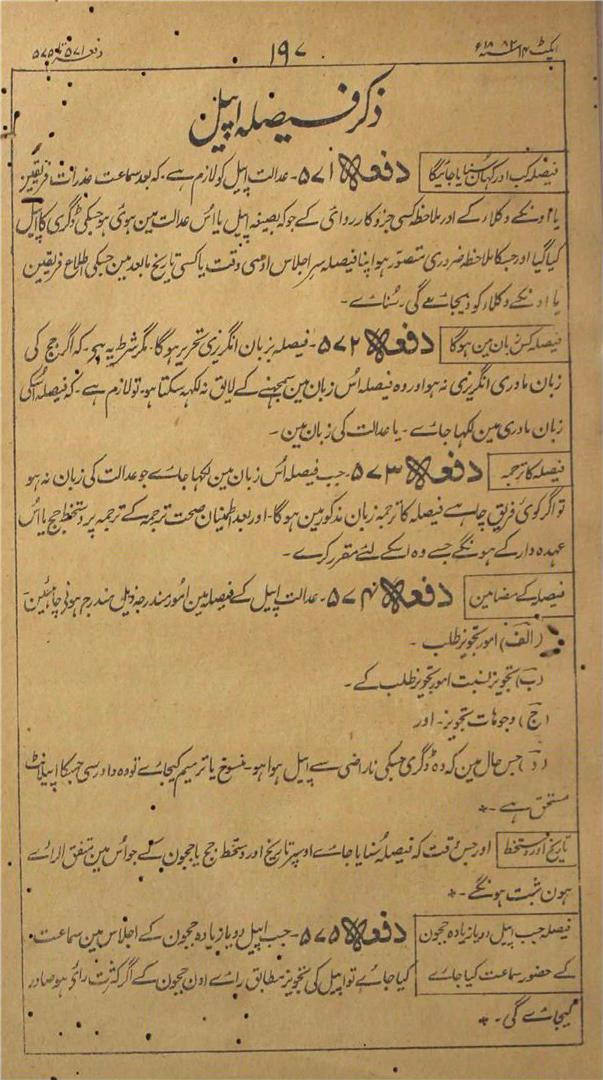 ایکٹ ۱۴ سنہ ۱۸۸۲ء
۱۹۷
دفعہ ۵۷۱ تا ۵۷۵
ذکر فیصلہ اپیل
فیصلہ کب اور کہاں سُنایا جائیگا دفعہ ۵۷۱ - عدالت اپیل کو لازم ہے - کہ بعد سماعت عذرات فریقین
یا اونکے وکلاء کے اور ملاحظہ کسی جزو کارروائی کے جو کہ بصیغہ اپیل یا اُس عدالت مین ہوئی ہو جسکی ڈگری کا اپیل
کیا گیا اور جسکا ملاحظہ ضروری متصوّر ہو اپنا فیصلہ سر اجلاس اوسی وقت یا کسی تاریخ مابعد مین جسکی اطلاع فریقین
یا اونکے وکلاء کو دیجاے گی - سُناے -
فیصلہ کس زبان مین ہوگا دفعہ ۵۷۲ - فیصلہ بزبان انگریزی تحریر ہوگا - مگر شرط یہ ہے - کہ اگر جج کی
زبان مادری انگریزی نہ ہو اور وہ فیصلہ اُس زبان مین سمجھنے کے لایق نہ لکھ سکتا ہو - تو لازم ہے - کہ فیصلہ اُسکی
زبان مادری مین لکھا جاے - یا عدالت کی زبان مین -
فیصلہ کا ترجمہ دفعہ ۵۷۳ - جب فیصلہ اُس زبان مین لکھا جاے جو عدالت کی زبان نہ ہو
تو اگر کوئی فریق چاہے فیصلہ کا ترجمہ زبان مذکور مین ہوگا - اور بعد اطمینان صحت ترجمہ کے ترجمہ پر دستخط جج یا اُس
عہدہ دار کے ہونگے جسے وہ اسکے لئے مقرر کرے -
فیصلہ کے مضامین دفعہ ۵۷۴ - عدالت اپیل کے فیصلہ مین امُور مندرجہ ذیل مندرج ہونی چاہئین
(الف) امور تجویز طلب -
(ب) تجویز نسبت امور تجویز طلب کے -
(ج) وجوہات تجویز - اور
(د) جس حال مین کہ وہ ڈگری جسکی ناراضی سے اپیل ہوا ہو - منسوخ یا ترمیم کیجاے تو وہ دادرسی جسکا اپیلانٹ
مستحق ہے -*
تاریخ اور دستخط اور جس وقت کہ فیصلہ سُنایا جاے اوسپر تاریخ اور دستخط جج یا ججون کے جو اُس مین متفق الراے
ہون ثبت ہونگے -*
فیصلہ جب اپیل دو یا زیادہ ججون دفعہ ۵۷۵ - جب اپیل دو یا زیادہ ججون کے اجلاس مین سماعت
کے حضور سماعت کیا جاے کیا جاے تو اپیل کی تجویز مطابق راے اون ججون کے اگر کثرت رائے ہو صادر
کیجاے گی -*